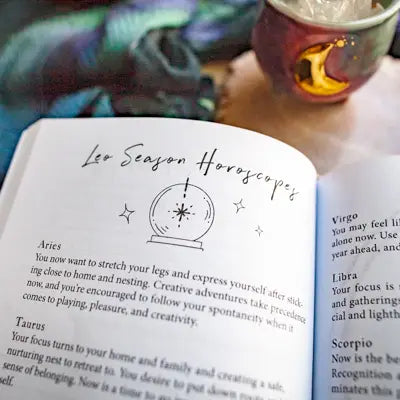 Leo Season Horoscopes
Aries
You now want to stretch your legs and express yourself after stick-
ing close to home and nesting. Creative adventures take precedence
now, and you're encouraged to follow your spontaneity when it
comes to playing, pleasure, and creativity.
Taurus
Your focus turns to your home and family and creating a safe,
nurturing nest to retreat to. You desire to put down
sense of belonging. Now is a time to
self.
Virgo
You may feel li
alone now. Use
year ahead, and
Libra
Your focus is
and gatherings
cial and lighth
Scorpio
Now is the be
Recognition
minates this